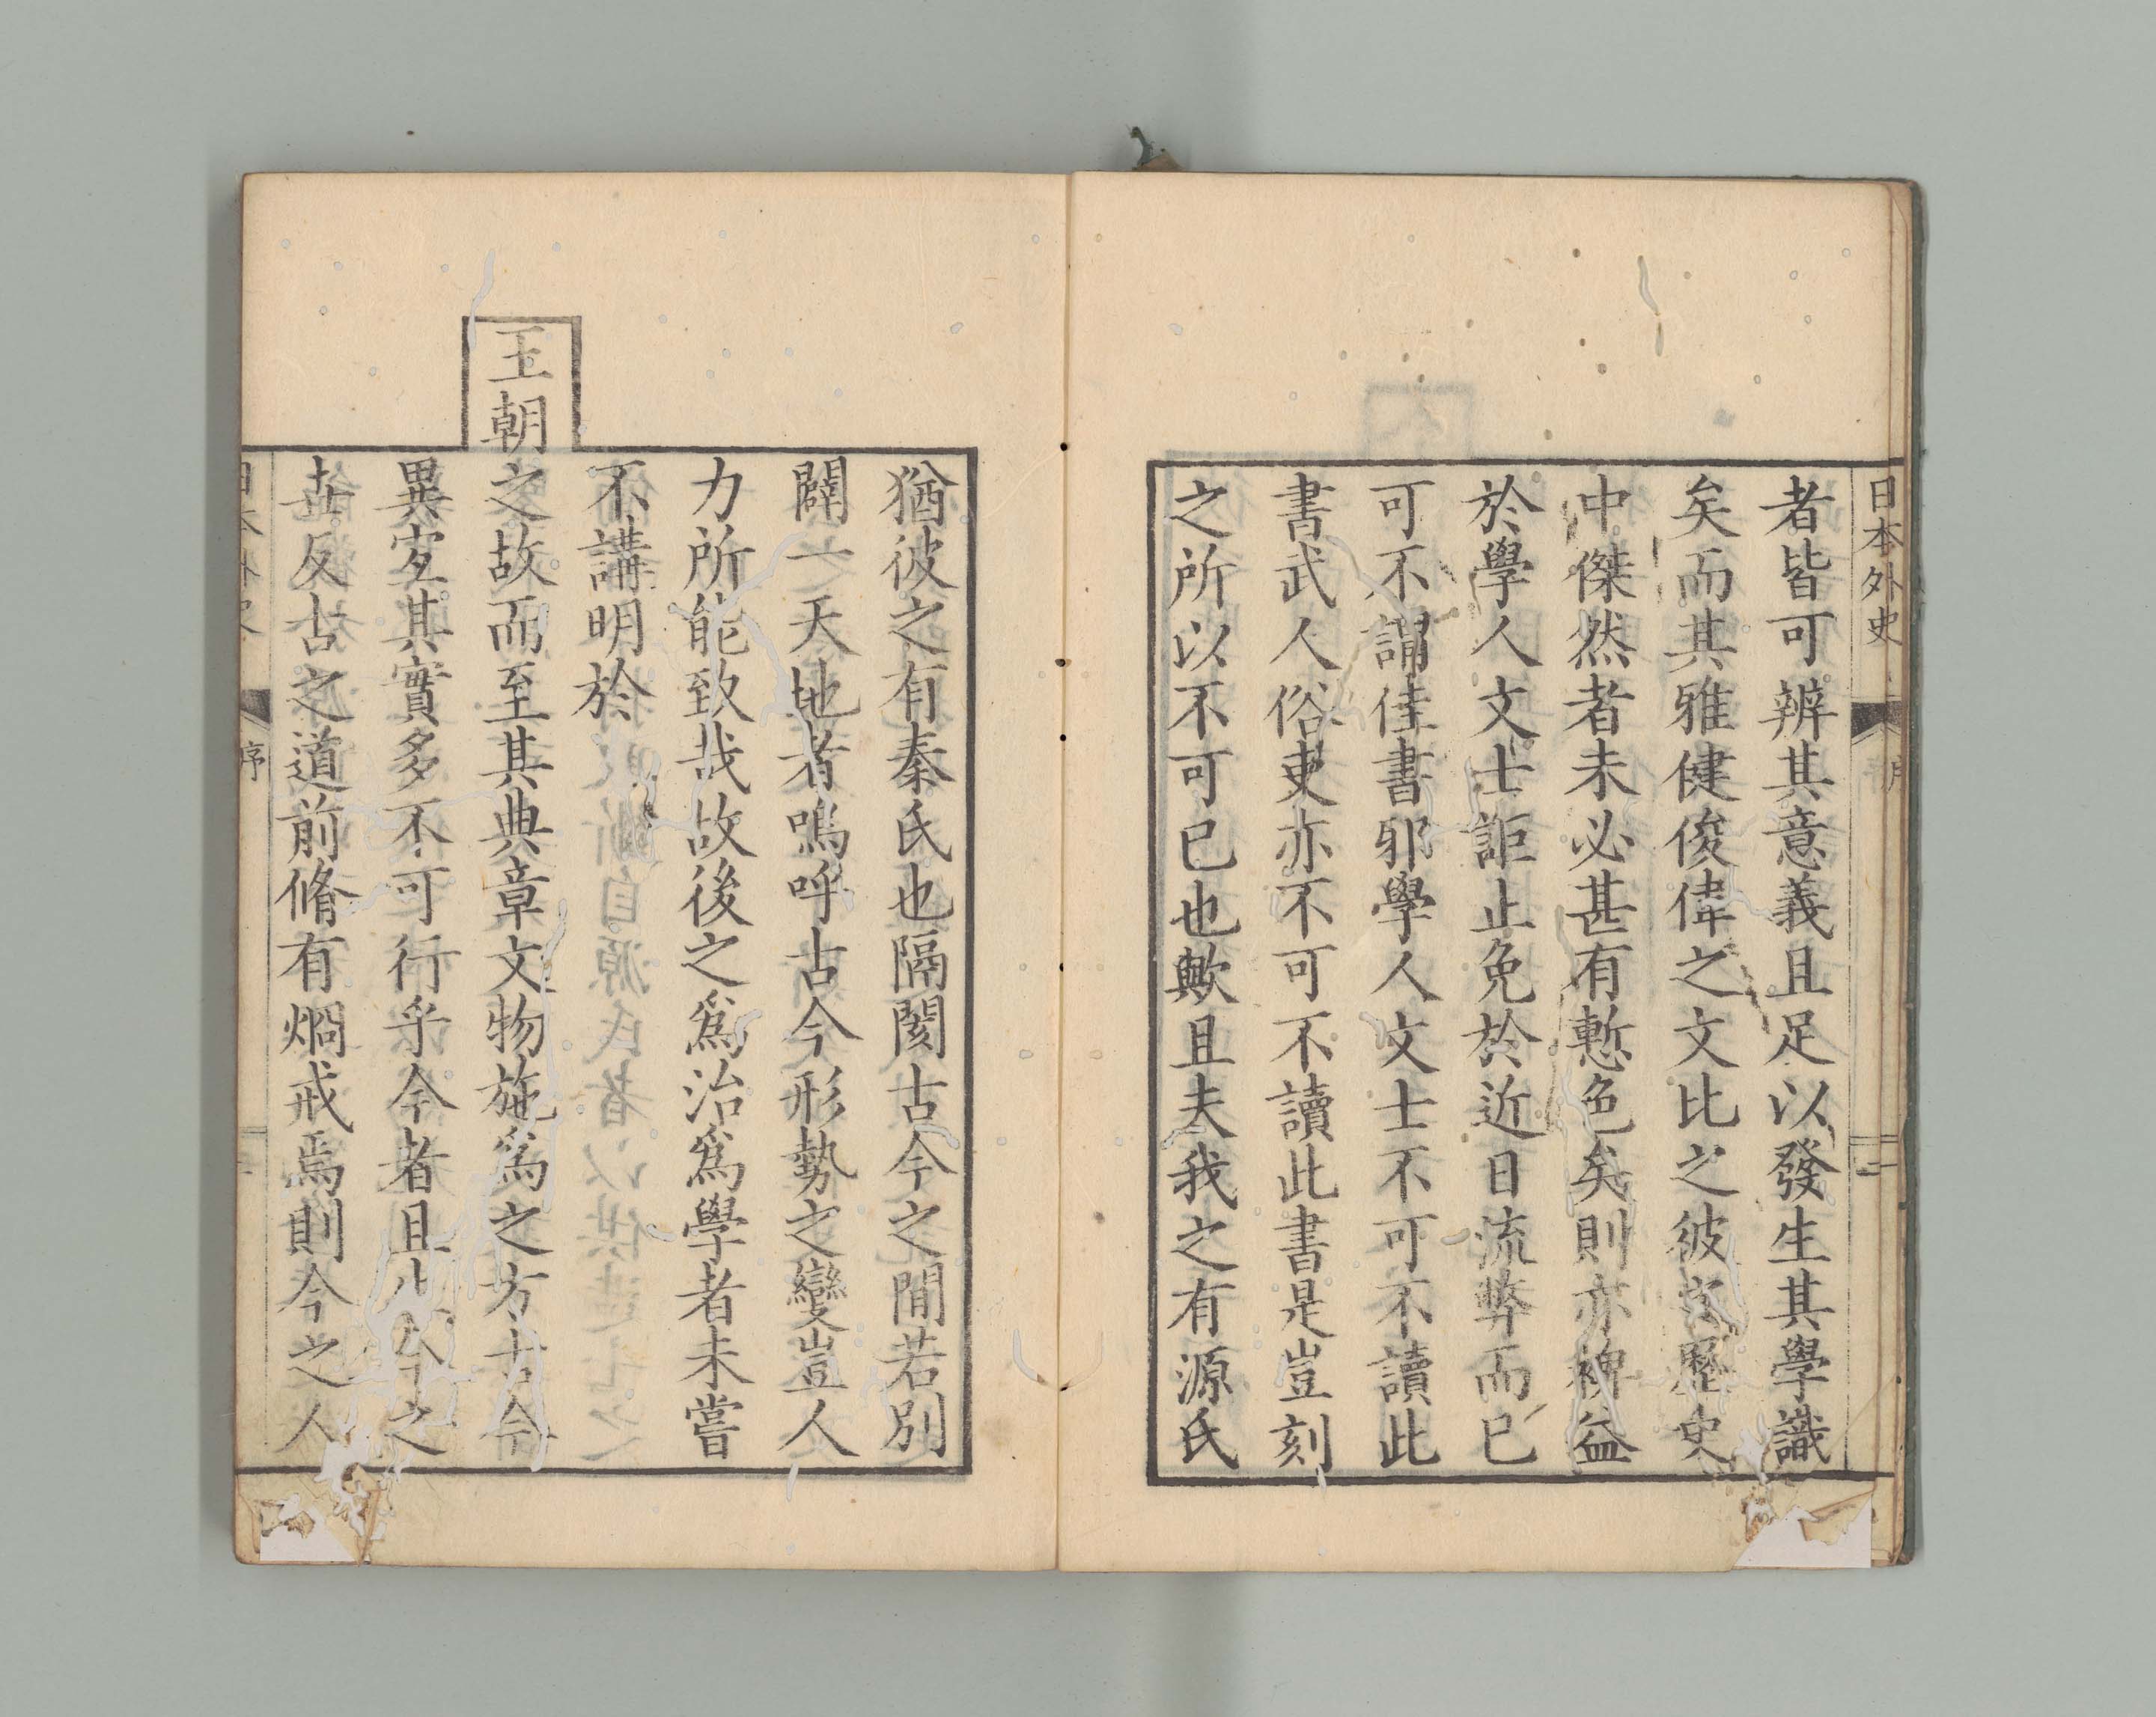 日本外史
者皆可辨其意義且足以發生其學識
矣而其雅健俊偉之文比之彼家歷史
中傑然者未必甚有慙色矣則亦裨益
於學人文士詎止免於近日流弊而已
可不謂佳書邪學人文士不可不讀此
書武人俗吏亦不可不讀此書是豈刻
之所以不可已也歟且夫我之有源氏
猶彼之有秦氏也隔閡古今之間若別
闢一天地者嗚呼古今形勢之變豈人
力所能致哉故後之爲治爲學者未嘗
不講明於
王朝
之故而至其典章文物施爲之方古今
異宐其實多不可行乎今者且生今之
世反古之道前脩有烱戒焉則今之人
序